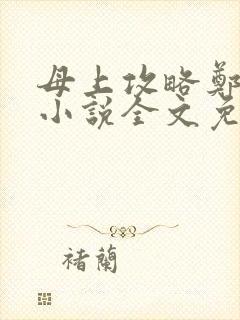 母上攻略鄭
小說全文免
褚蘭